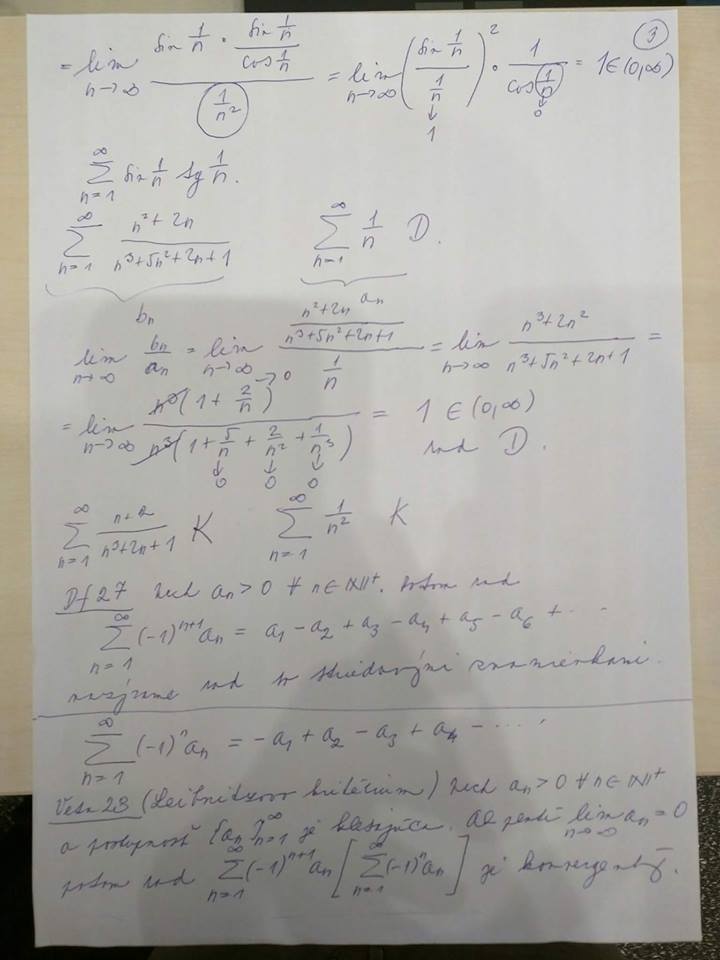 3
= lim n→∞ (sin 1/n · (sin 1/n)/(cos 1/n))/(1/n²) = lim n→∞ ((sin 1/n)/(1/n))² · 1/(cos 1/n) = 1 ∈ (0,∞)
↓ 1 ↓ 0
∞∑n=1 sin 1/n tg 1/n.
∞∑n=1 (n²+2n)/(n³+5n²+2n+1) ∞∑n=1 1/n D.
bn an
lim n→∞ bn/an = lim n→∞ ((n²+2n)/(n³+5n²+2n+1))/(1/n) = lim n→∞ (n³+2n²)/(n³+5n²+2n+1) =
= lim n→∞ (n³(1 + 2/n))/(n³(1 + 5/n + 2/n² + 1/n³)) = 1 ∈ (0,∞)
→ 0
rad D.
↓ 0 ↓ 0 ↓ 0
∞∑n=1 (n+2)/(n³+2n+1) K ∞∑n=1 1/n² K
Df 27 Nech an > 0 ∀ n ∈ ℕ⁺. Potom rad
∞∑n=1 (-1)ⁿ⁺¹ an = a1 - a2 + a3 - a4 + a5 - a6 + ...
nazývame rad so striedavými znamienkami.
∞∑n=1 (-1)ⁿ an = -a1 + a2 - a3 + a4 - ....
Veta 23 (Leibnitzovo kritérium) Nech an > 0 ∀ n ∈ ℕ⁺
a postupnosť {an}∞n=1 je klesajúca. Ak platí lim n→∞ an = 0
potom rad ∞∑n=1 (-1)ⁿ⁺¹ an [∞∑n=1 (-1)ⁿ an] je konvergentný.